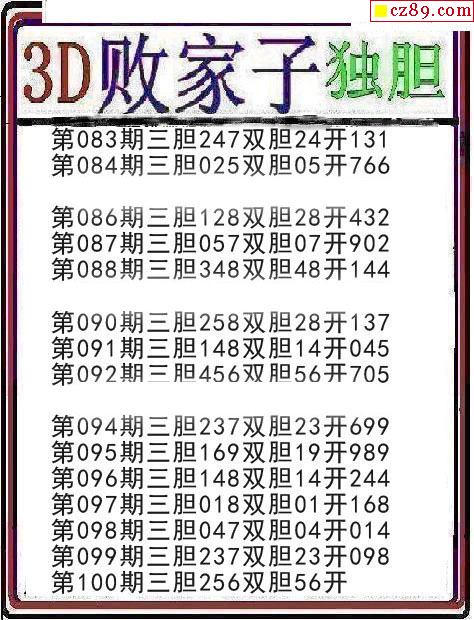 cz89.com
3D败家子独胆
第083期三胆247双胆24开131
第084期三胆025双胆05开766
第086期三胆128双胆28开432
第087期三胆057双胆07开902
第088期三胆348双胆48开144
第090期三胆258双胆28开137
第091期三胆148双胆14开045
第092期三胆456双胆56开705
第094期三胆237双胆23开699
第095期三胆169双胆19开989
第096期三胆148双胆14开244
第097期三胆018双胆01开168
第098期三胆047双胆04开014
第099期三胆237双胆23开098
第100期三胆256双胆56开